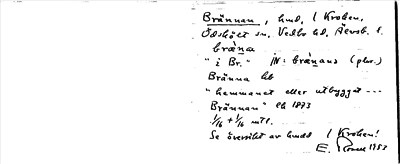 Brännan, hmd, l Kroken,
Ödshölt sn, Vedbo hd, Älvsb. l.
bràna
"i Br." IN: brànans (plur.)
Bränna hb
"hemmanet eller utbygget ---
Brännan" lb 1873
1/16 + 1/16 mtl.
Se översikt av hmdl l Kroken!
E. 1983